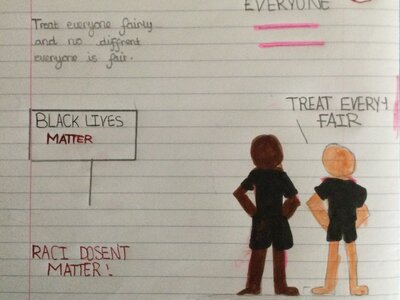 EVERYONE
Treat everyone fairly
and no diffrent
everyone is fair.
TREAT EVERY-1
FAIR
BLACK LIVES
MATTER
RACI DOSENT
MATTER!